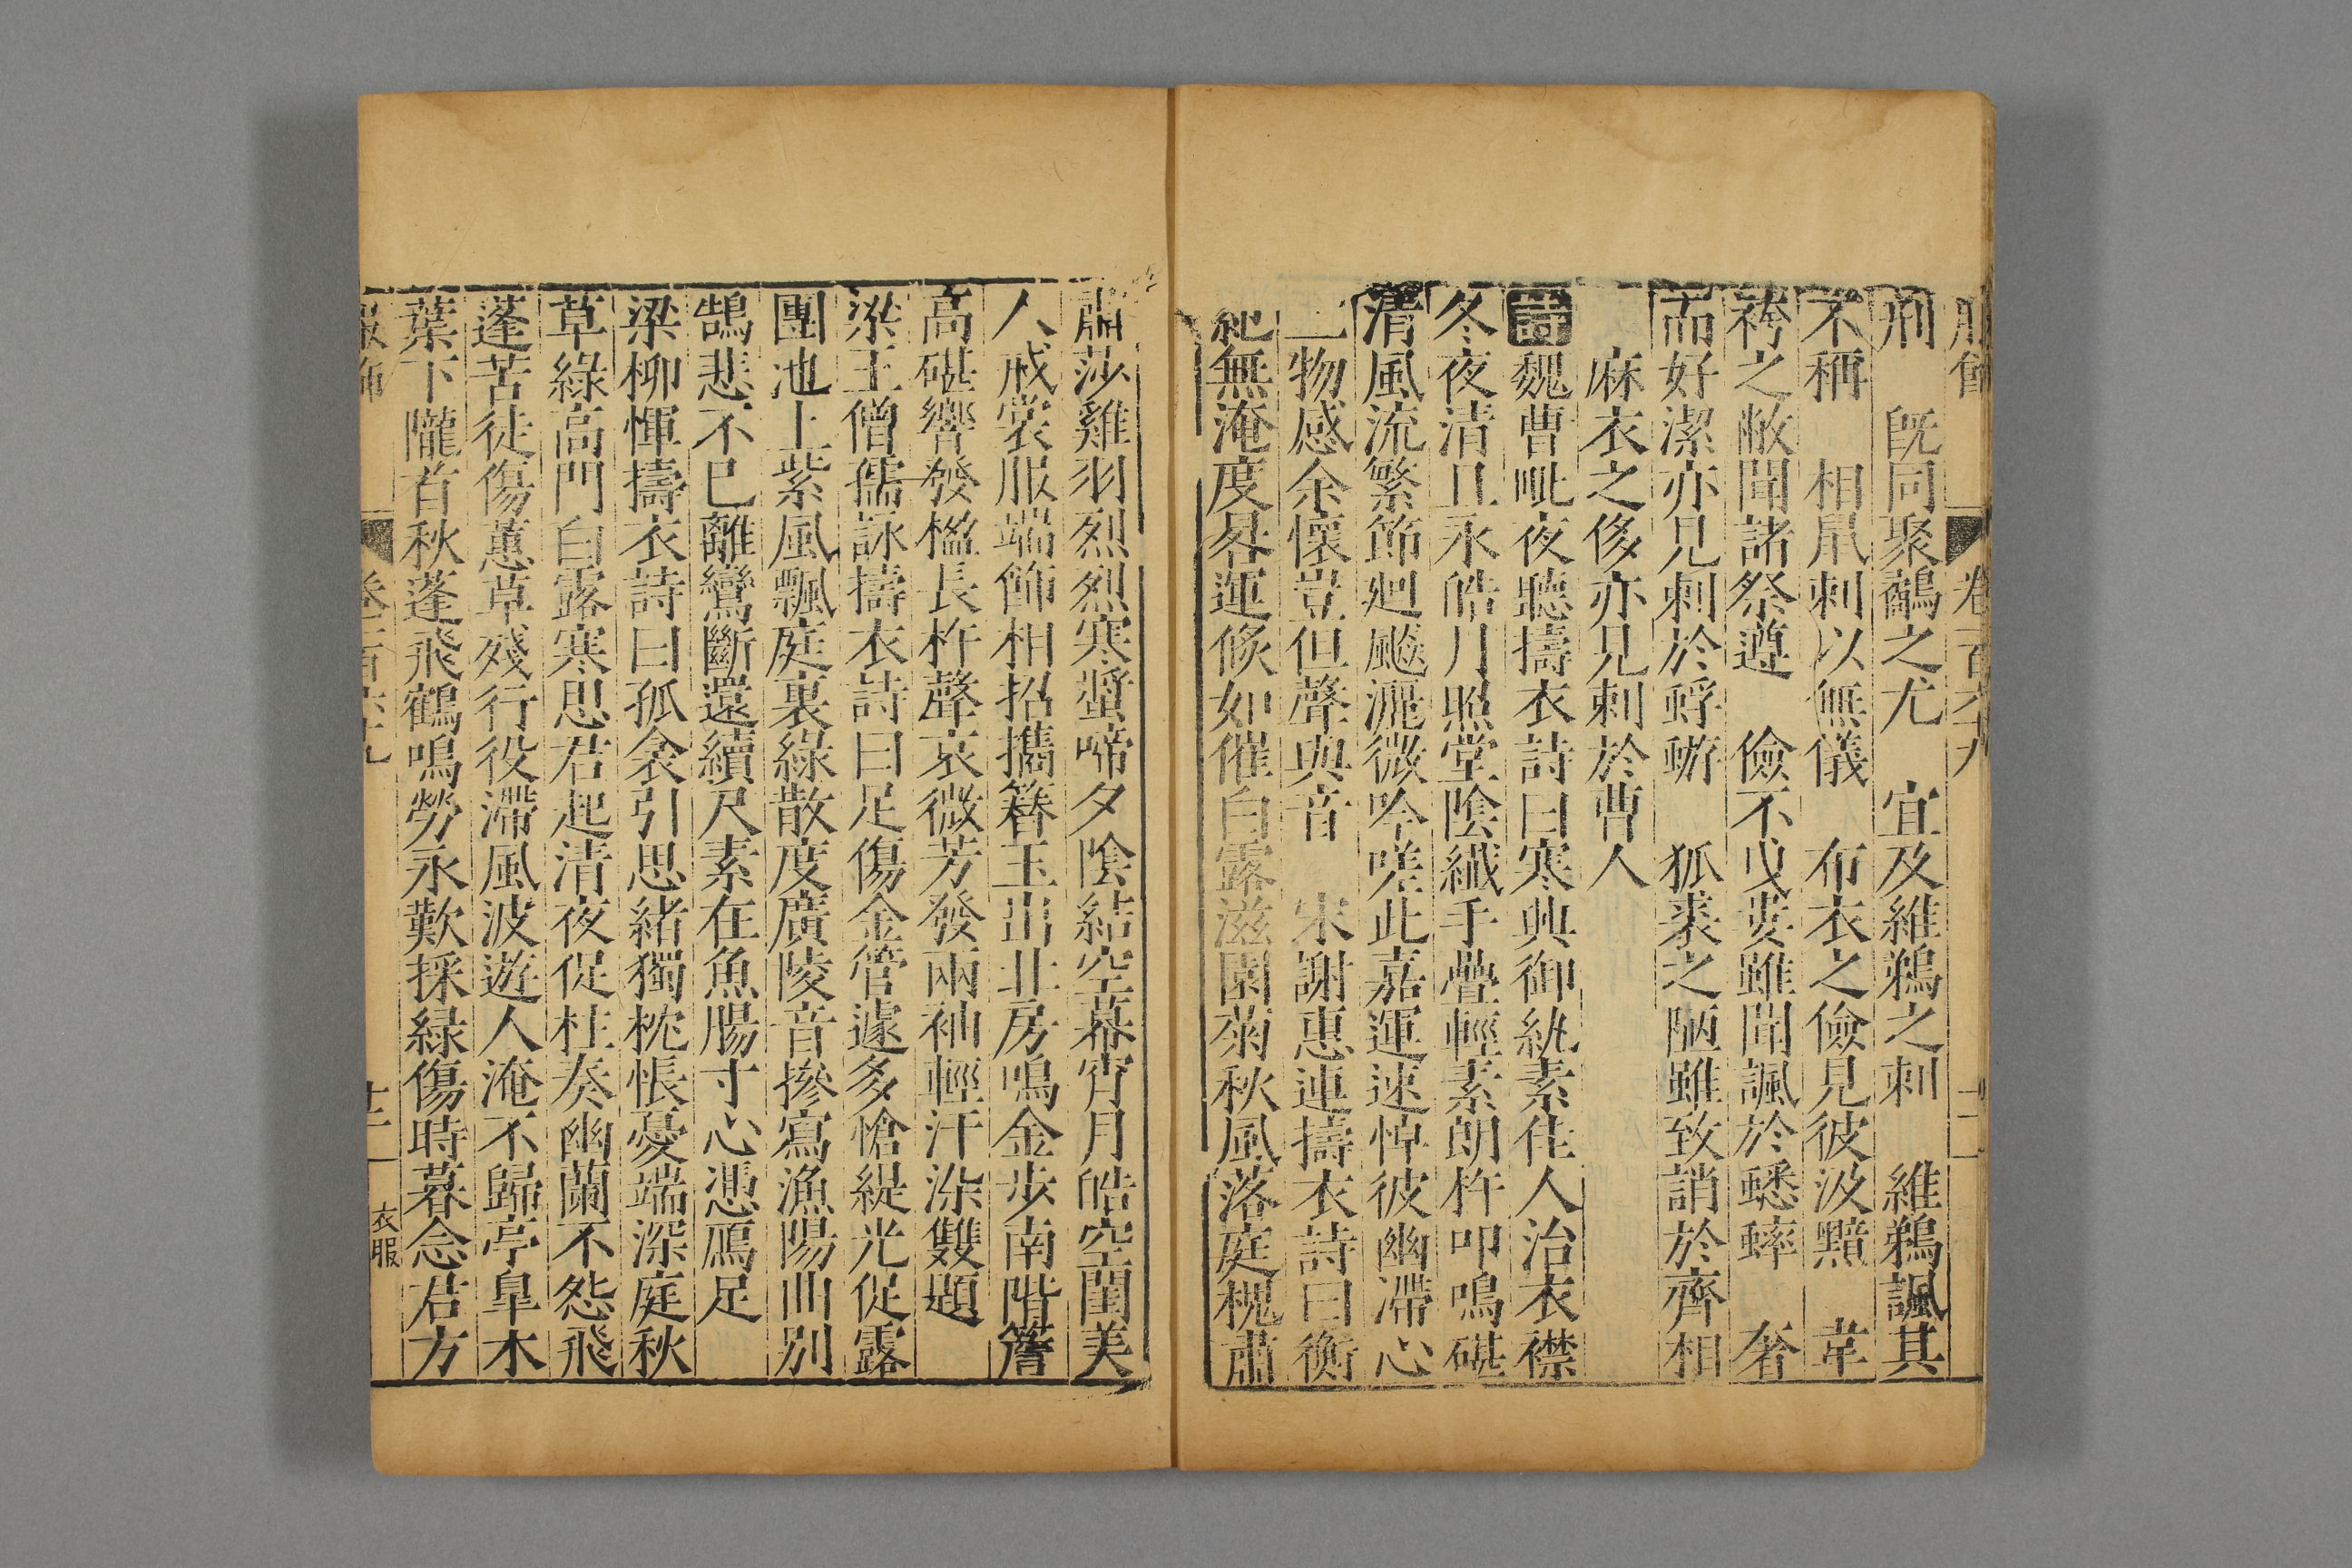 服飾 卷百六九 十二
刑 既同聚鷸之尤 宜及維鵜之刺 維鵜諷其
不稱 相鼠刺以無儀 布衣之儉見彼汲黯 韋
袴之敝聞諸祭遵 儉不戈妾雖聞諷於蟋蟀 奢
而好潔亦見刺於蜉蝣 狐裘之陋雖致誚於齊相
麻衣之侈亦見刺於曹人
詩 魏曹毗夜聽擣衣詩曰寒興御紈素佳人治衣襟
冬夜清且永皓月照堂陰纖手疊輕素朗杵叩鳴碪
清風流繁節廻飈灑微吟嗟此嘉運速悼彼幽滯心
二物感余懷豈但聲與音 宋謝惠連擣衣詩曰衡
紀無淹度晷運倐如催白露滋園菊秋風落庭槐肅
肅莎雞羽烈烈寒螿啼夕陰結空幕宵月皓空閨美
人戒裳服端飾相招攜簪玉出北房鳴金步南階簷
高碪響發楹長杵聲哀微芳發兩袖輕汗染雙題
梁王僧孺詠擣衣詩曰足傷金管遽多愴緹光促露
團池上紫風飄庭裏綠散度廣陵音摻寫漁陽曲別
鵠悲不已離鸞斷還續尺素在魚腸寸心憑鴈足
梁柳惲擣衣詩曰孤衾引思緒獨枕悵憂端深庭秋
草綠高門白露寒思君起清夜促柱奏幽蘭不怨飛
蓬苦徒傷蕙草殘行役滯風波遊人淹不歸亭皐木
葉下隴首秋蓬飛鶴鳴勞永歎採綠傷時暮念君方
服飾 卷百六十九 十二 衣服